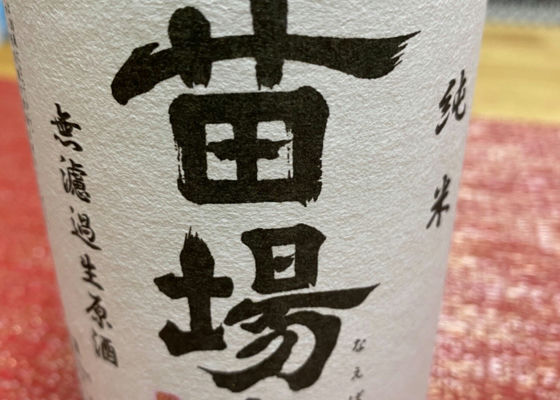 純米
苗場
なえば
無濾過生原酒